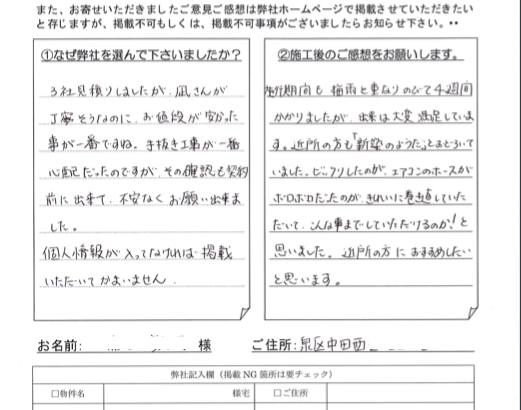 また、お寄せいただきましたご意見ご感想は弊社ホームページで掲載させていただきたい
と存じますが、掲載不可もしくは、掲載不可事項がございましたらお知らせ下さい。••
①なぜ弊社を選んで下さいましたか?
3社見積りしましたが、凪さんが
丁寧そうなのに、お値段が安かった
事が一番ですね。手抜き工事が一番
心配だったのですが、その確認も契約
前に出来て、不安なくお願い出来ま
した。
個人情報が入ってなければ掲載
いただいてかまいません。
②施工後のご感想をお願いします。
施行期間も梅雨と重なりのびて4週間
かかりましたが、出来は大変満足していま
す。近所の方も「新築のようだ」とおどろいて
いました。ビックリしたのが、エアコンのホースが
ボロボロだったのが、きれいに巻き直していた
だいて、こんな事までしていただけるのか!と
思いました。近所の方におすすめしたい
と思います。
お名前: 様
ご住所: 泉区中田西
弊社記入欄(掲載 NG 箇所は要チェック)
□物件名 様宅 □ご住所